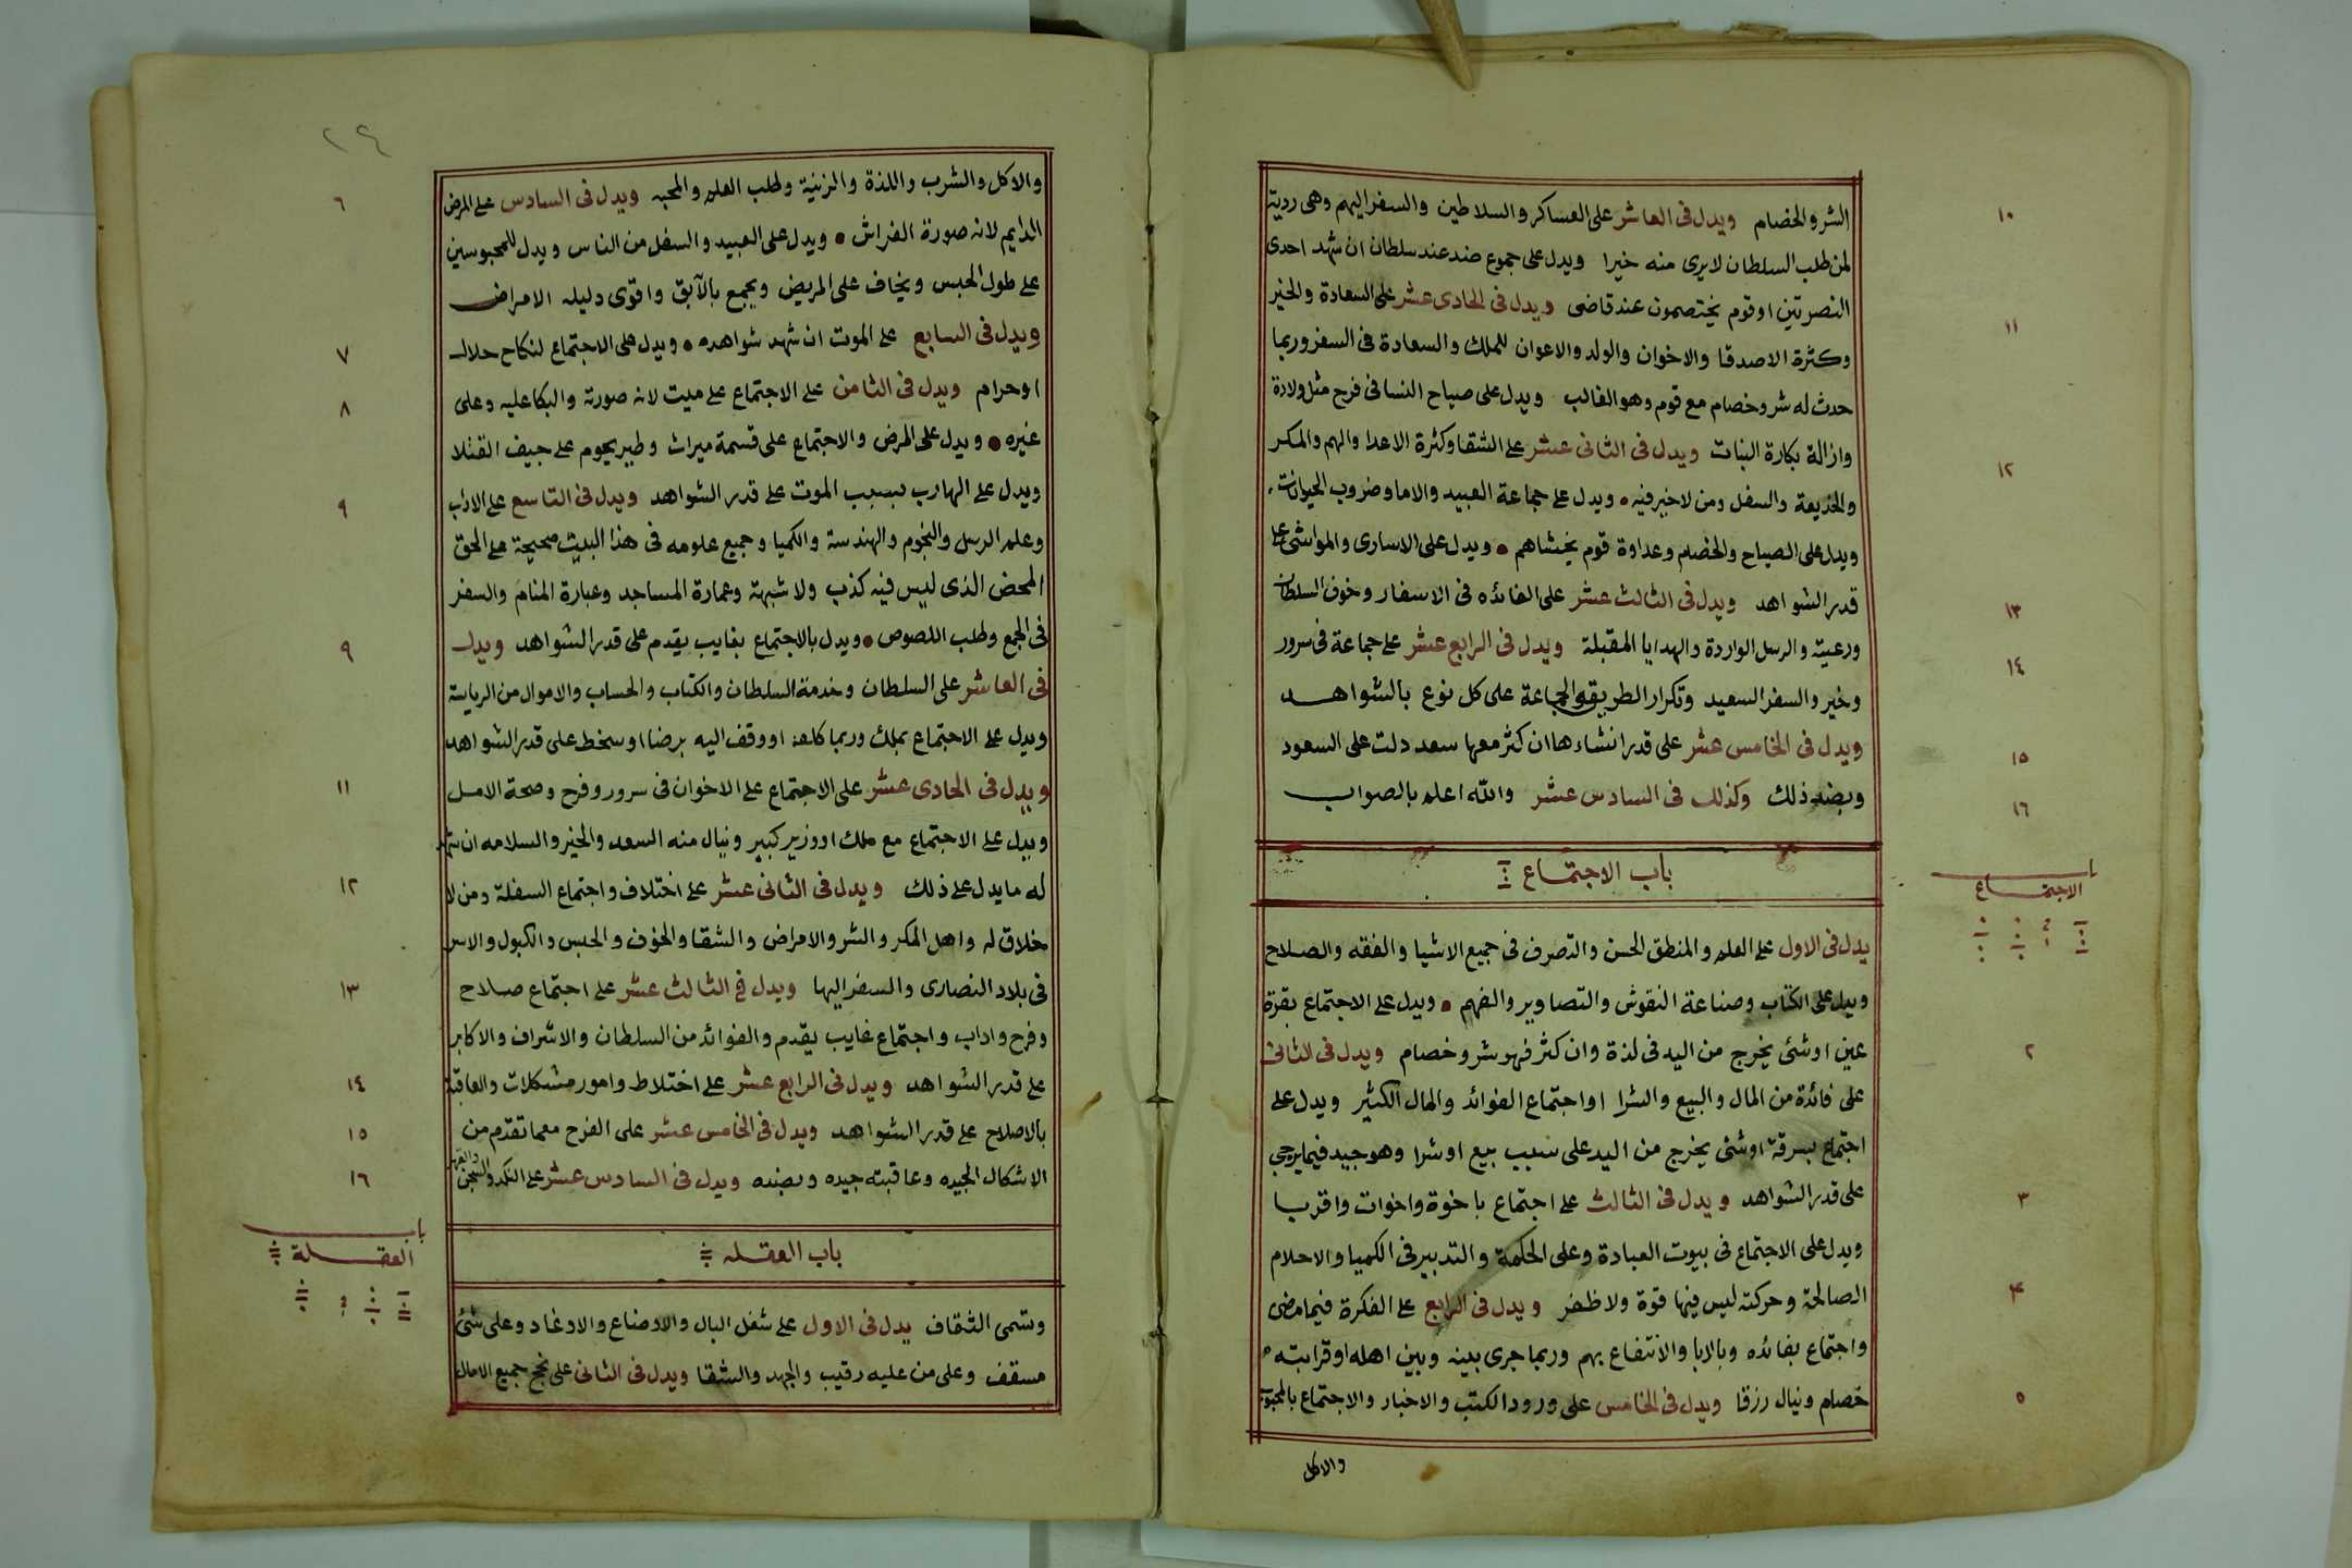 الشر والخصام ويدل فى العاشر على العساكر والسلاطين والسفر اليهم وهى ردية
١٠
لمن طلب السلطان لا يرى منه خيرا ويدل على جموع ضد عند سلطان ان شهد احدى
النصرتين او قوم يختصمون عند قاضى ويدل فى الحادى عشر على السعادة والخير
١١
وكثرة الاصدقا والاخوان والولد والاعوان للملك والسعادة فى السفر وربما
حدث له شر وخصام مع قوم وهو الغالب ويدل على صياح النسا فى فرح مثل ولادة
وازالة بكارة البنات ويدل فى الثانى عشر على الشقا وكثرة الاعدا والهم والمكر
١٢
والخديعة والسفل ومن لا خير فيه ويدل على جماعة العبيد والاما وضروب الحيوانات
ويدل على الصياح والخصام وعداوة قوم يخشاهم ويدل على الاسارى والمواشى على
قدر الشواهد ويدل فى الثالث عشر على الفائده فى الاسفار وخوف السلطان
١٣
ورعيته والرسل الواردة والهدايا المقبلة ويدل فى الرابع عشر على جماعة فى سرور
١٤
وخير والسفر السعيد وتكرار الطريقه الجماعة على كل نوع بالشواهد
ويدل فى الخامس عشر على قدر انشاءها ان كثر معها سعد دلت على السعود
١٥
وبضد ذلك وكذلك فى السادس عشر والله اعلم بالصواب
١٦
باب الاجتماع
باب
الاجتماع
يدل فى الاول على العلم والمنطق الحسن والتصرف فى جميع الاشيا والفقه والصلاح
ويدل على الكتاب وصناعة النقوش والتصاوير والفهم ويدل على الاجتماع بقرة
عين او شئ يخرج من اليد فى لذة وان كثر فهو شر وخصام ويدل فى الثانى
٢
على فائدة من المال والبيع والشرا او اجتماع الفوائد والمال الكثير ويدل على
اجتماع بسرقة او شئ يخرج من اليد على سبب بيع او شرا وهو جيد فيما يرجى
على قدر الشواهد ويدل فى الثالث على اجتماع باخوة واخوات واقربا
٣
ويدل على الاجتماع فى بيوت العبادة وعلى الحكمة والتدبير فى الكميا والاحلام
الصالحة وحركته ليس فيها قوة ولا ظفر ويدل فى الرابع على الفكرة فيما مضى
۴
واجتماع بفائده وبالابا والانتفاع بهم وربما جرى بينه وبين اهله او قرابته
خصام وينال رزقا ويدل فى الخامس على ورود الكتب والاخبار والاجتماع بالمحبوب
٥
والاكل
٢٤
والاكل والشرب واللذة والزينة وطلب العلم والمحبه ويدل فى السادس على المرض
٦
الدايم لانه صورة الفراش ويدل على العبيد والسفل من الناس ويدل للمحبوسين
على طول الحبس ويخاف على المريض ويجمع بالآبق واقوى دليله الامراض
ويدل فى السابع على الموت ان شهد شواهده ويدل على الاجتماع لنكاح حلال
٧
او حرام ويدل فى الثامن على الاجتماع على ميت لانه صورته والبكا عليه وعلى
٨
غيره ويدل على المرض والاجتماع على قسمة ميراث وطير يحوم على جيف القتلا
ويدل على الهارب بسبب الموت على قدر الشواهد ويدل فى التاسع على الاداب
٩
وعلم الرسل والنجوم والهندسة والكميا وجميع علومه فى هذا البيت صحيحة على الحق
المحض الذى ليس فيه كذب ولا شبهة وعمارة المساجد وعبارة المنام والسفر
فى الجمع وطلب اللصوص ويدل بالاجتماع بغايب يقدم على قدر الشواهد ويدل
٩
فى العاشر على السلطان وخدمة السلطان والكتاب والحساب والاموال من الرياسة
ويدل على الاجتماع بملك وربما كلمه او وقف اليه برضا او سخط على قدر الشواهد
ويدل فى الحادى عشر على الاجتماع على الاخوان فى سرور وفرح وصحة الامل
١١
ويدل على الاجتماع مع ملك او وزير كبير وينال منه السعد والخير والسلامه ان شهد
له ما يدل على ذلك ويدل فى الثانى عشر على اختلاف واجتماع السفلة ومن لا
١٢
خلاق له واهل المكر والشر والامراض والشقا والخوف والحبس والكبول والاسر
فى بلاد النصارى والسفر اليها ويدل فى الثالث عشر على اجتماع صلاح
١٣
وفرح واداب واجتماع غايب يقدم والفوائد من السلطان والاشراف والاكابر
على قدر الشواهد ويدل فى الرابع عشر على اختلاط وامور مشكلات والعاقبة
١٤
بالاصلاح على قدر الشواهد ويدل فى الخامس عشر على الفرح مع ما تقدم من
١٥
الاشكال الجيده وعاقبته جيده وبضده ويدل فى السادس عشر على النكد والسجن والقهر
١٦
باب العقله
باب
العقلة
وتسمى الثقاف يدل فى الاول على شغل البال والاوضاع والادغاد وعلى شئ
مسقف وعلى من عليه رقيب والجهد والشقا ويدل فى الثانى على نجح جميع الامال